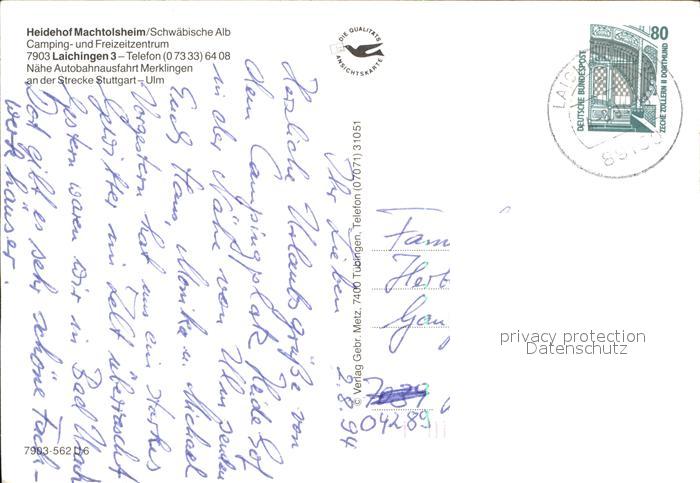 Heidehof Machtolsheim/Schwäbische Alb
Camping- und Freizeitzentrum
7903 Laichingen 3 – Telefon (0 73 33) 64 08
Nähe Autobahnausfahrt Merklingen
an der Strecke Stuttgart – Ulm
DIE QUALITÄTS
ANSICHTSKARTE
80
DEUTSCHE BUNDESPOST
ZECHE ZOLLERN II DORTMUND
LAICH
89150
2.8.94
Ihr Lieben
Herzliche Urlaubsgrüße von
dem Campingplatz Heidehof
in der Nähe von Ulm senden
Euch Hans, Monika u. Michael
Vorgestern hat uns ein starkes
Gewitter im Zelt überrascht
Gestern waren wir in Bad Urach
Dort gibt es sehr schöne Fach-
werkhäuser.
© Verlag Gebr. Metz, 7400 Tübingen, Telefon (07071) 31051
Fam
Herb
Gau
7039
04289
7903-562 U 6
privacy protection
Datenschutz